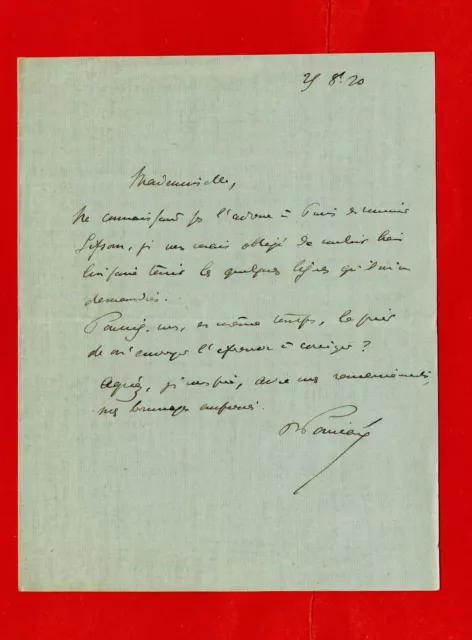 25 8bre 20
Mademoiselle,
Ne connaissant pas l'adresse à Paris de monsieur
je vous serais obligé de vouloir bien
lui faire tenir les quelques lignes qu'il m'a
demandées.
Pouvez-vous, en même temps, le prier
de m'envoyer l'épreuve à corriger ?
Agréez, je vous prie, avec mes remerciements,
mes hommages empressés.